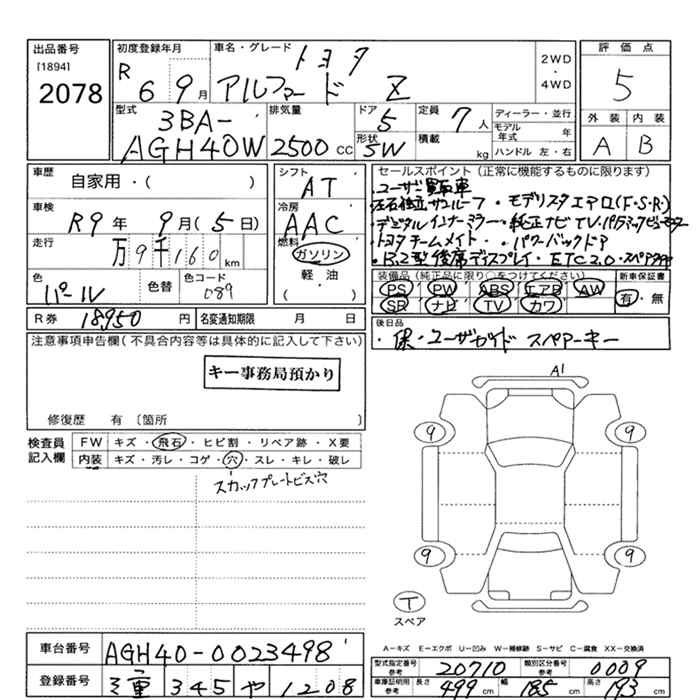 出品番号
[1894]
2078
初度登録年月
R 6 9月
車名・グレード
トヨタ
アルファード Z
2WD
・
4WD
評価点
5
外装 内装
A B
型式
3BA-
AGH40W
排気量
2500 CC
ドア
5
形状
SW
定員
7人
積載
kg
ディーラー・並行
モデル年式 年
ハンドル 左・右
車歴
自家用・( )
車検
R9年 9月(5日)
走行
万9千160km
色
パール
色替
色コード
089
シフト
AT
冷房
AAC
燃料
ガソリン
軽・油
( )
セールスポイント(正常に機能するものに限ります)
・ユーザー買取車
左右独立サンルーフ・モデリスタエアロ(F・S・R)
・デジタルインナーミラー・純正ナビTV・パノラミックビューモニター
・トヨタチームメイト・パワーバックドア
・13.2型後席ディスプレイ・ETC2.0・スペアタイヤ
装備品(純正品に限り○をつけてください)
PS PW ABS エアB AW
SR ナビ TV カワ
新車保証書
有・無
R券 18950円
名変通知期限 月 日
後日品
・保・ユーザーガイド スペアーキー
注意事項申告欄(不具合内容等は具体的に記入して下さい)
キー事務局預かり
修復歴 有 〔箇所
検査員
記入欄
FW キズ・飛石・ヒビ割・リペア跡・X要
内装 キズ・汚レ・コゲ・穴・スレ・キレ・破レ
スカッフプレートビス穴
A1
9 9
9 9
T
スペア
A=キズ E=エクボ U=凹み W=補修跡 S=サビ C=腐食 XX=交換済
車台番号 AGH40-0023498
登録番号 三重 345 や 1208
型式指定番号
参考
20710
類別区分番号
参考
0009
車庫証明用
参考
長さ 499cm 幅 185cm 高さ 193cm